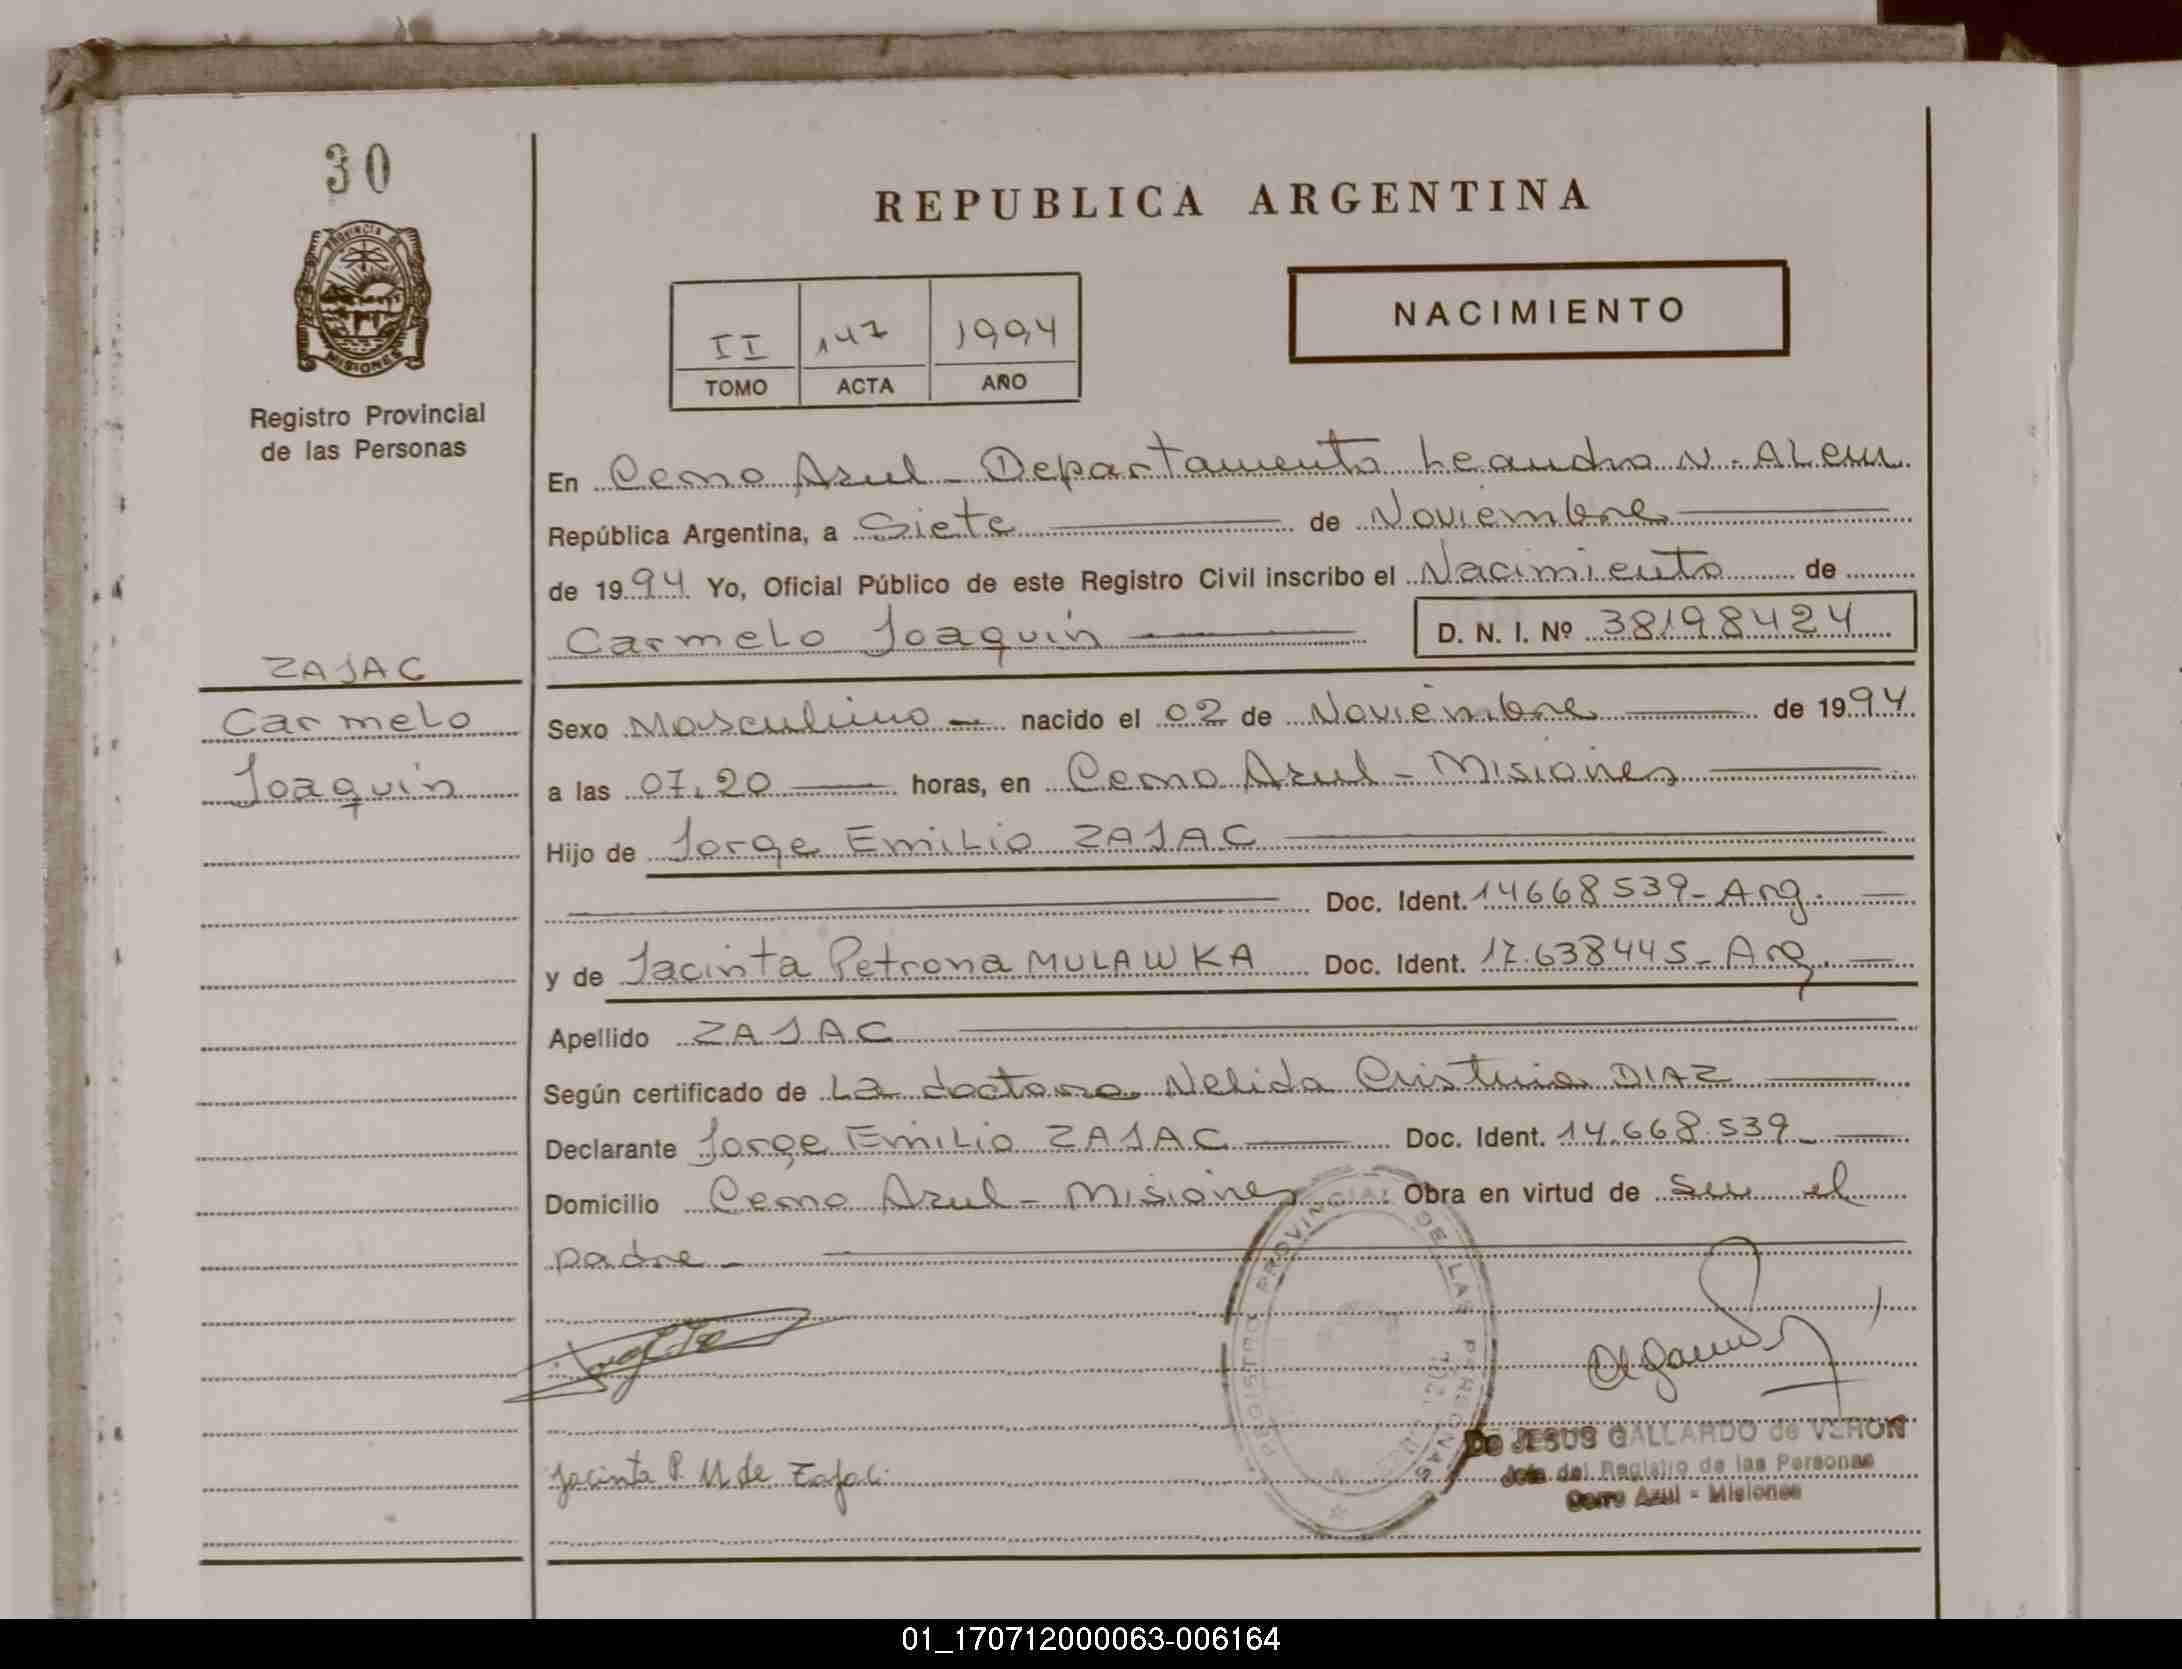 30
PROVINCIA DE
MISIONES
Registro Provincial
de las Personas
REPUBLICA ARGENTINA
NACIMIENTO
II 147 1994
TOMO ACTA AÑO
En Cerro Azul - Departamento Leandro N. ALem
República Argentina, a Siete de Noviembre
de 1994 Yo, Oficial Público de este Registro Civil inscribo el Nacimiento de
Carmelo Joaquín D. N. I. Nº 38198424
ZAJAC
Carmelo
Joaquín
Sexo Masculino - nacido el 02 de Noviembre de 1994
a las 07,20 horas, en Cerro Azul - Misiones
Hijo de Jorge Emilio ZAJAC
Doc. Ident. 14668539 - Arg.
y de Jacinta Petrona MULAWKA Doc. Ident. 17.638445 - Arg.
Apellido ZAJAC
Según certificado de La doctora Nelida Cristina DIAZ
Declarante Jorge Emilio ZAJAC Doc. Ident. 14.668.539 -
Domicilio Cerro Azul - Misiones Obra en virtud de Ser el
padre -
REGISTRO PROVINCIAL DE LAS PERSONAS
Jacinta P. M de Zajac
De JESUS GALLARDO de VERON
Jefa del Registro de las Personas
Cerro Azul - Misiones
01_170712000063-006164